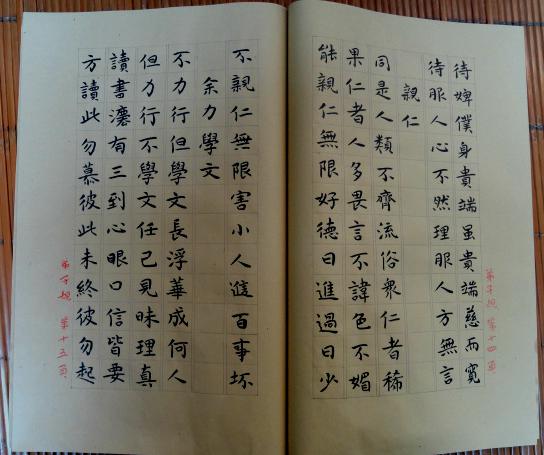 待婢僕身貴端雖貴端慈而寬
待服人心不然理服人方無言
親仁
同是人類不齊流俗眾仁者稀
果仁者人多畏言不諱色不媚
能親仁無限好德日進過日少
弟子規 第十四頁
不親仁無限害小人進百事坏
余力學文
不力行但學文長浮華成何人
但力行不學文任己見昧理真
讀書法有三到心眼口信皆要
方讀此勿慕彼此未終彼勿起
弟子規 第十五頁